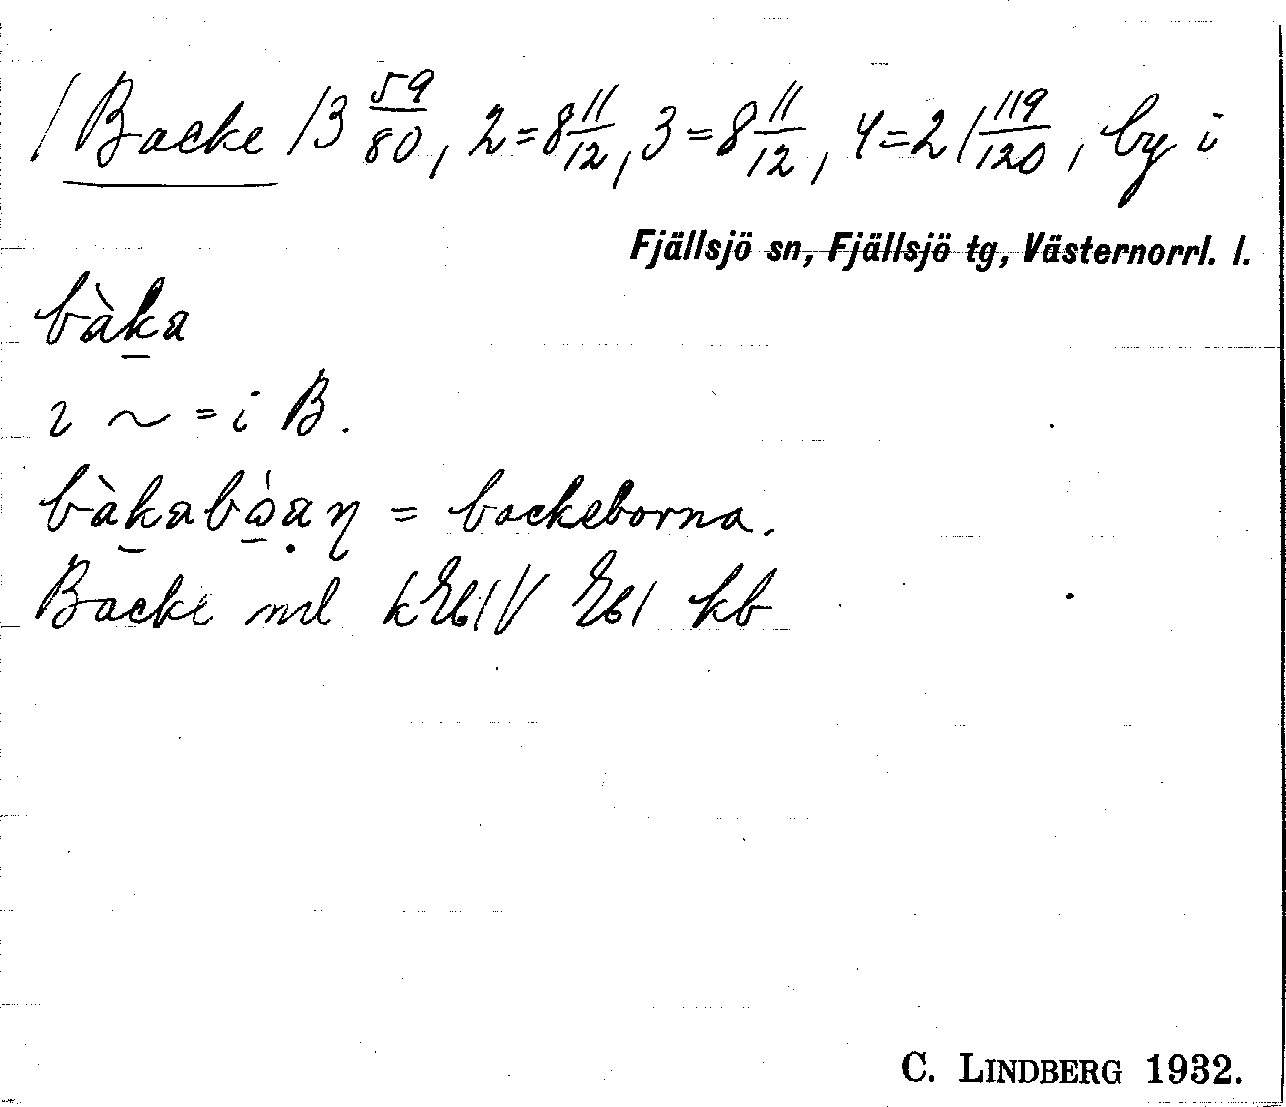 / Backe 13 59/80, 2=8 11/12, 3=8 11/12, 4=21 119/120, by i
Fjällsjö sn, Fjällsjö tg, Västernorrl. l.
bàka
ɩ ~ = i B.
= backeborna.
Backe ml kb
C. LINDBERG 1932.